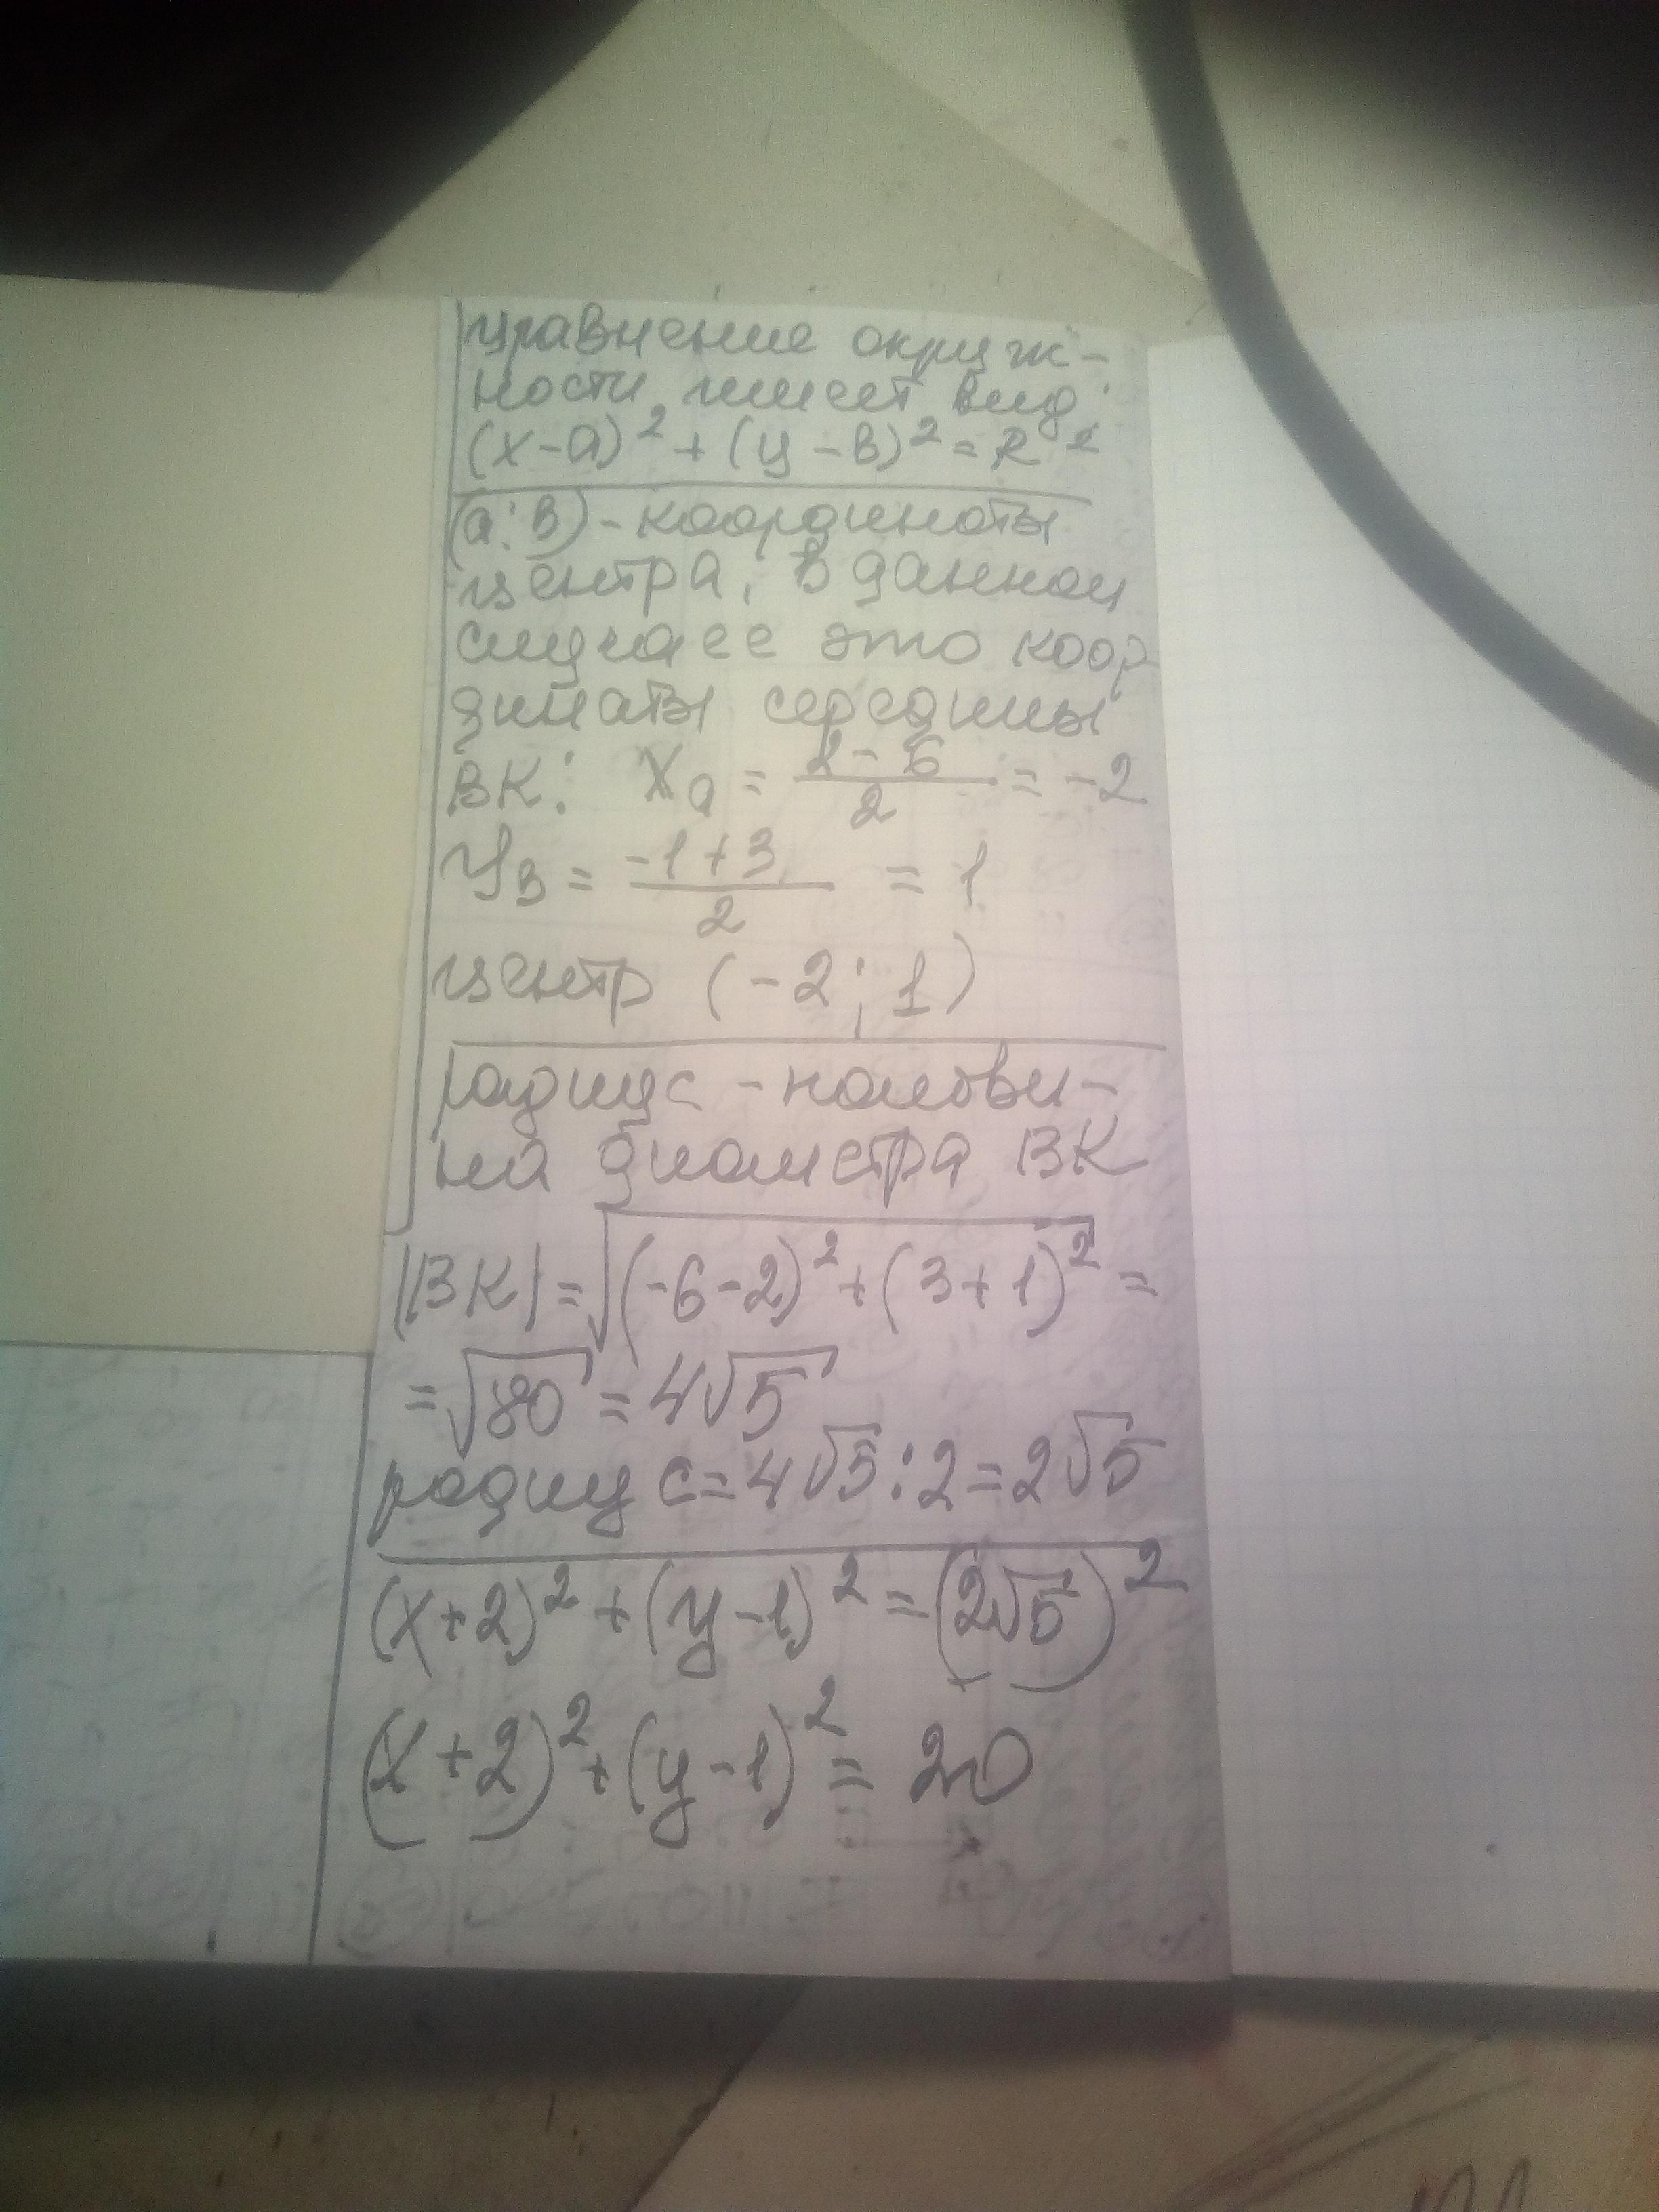 уравнение окруж-
ности имеет вид:
(x-a)² + (y-в)² = R²
(a; в) - координаты
центра, в данном
случаее это коор
динаты середины
ВК: Xa = 2-6/2 = -2
Ув = -1+3/2 = 1
центр (-2; 1)
радиус - полови-
на диаметра ВК
|ВК| = √(-6-2)² + (3+1)² =
= √80 = 4√5
радиус = 4√5 : 2 = 2√5
(x+2)² + (y-1)² = (2√5)²
(x+2)² + (y-1)² = 20